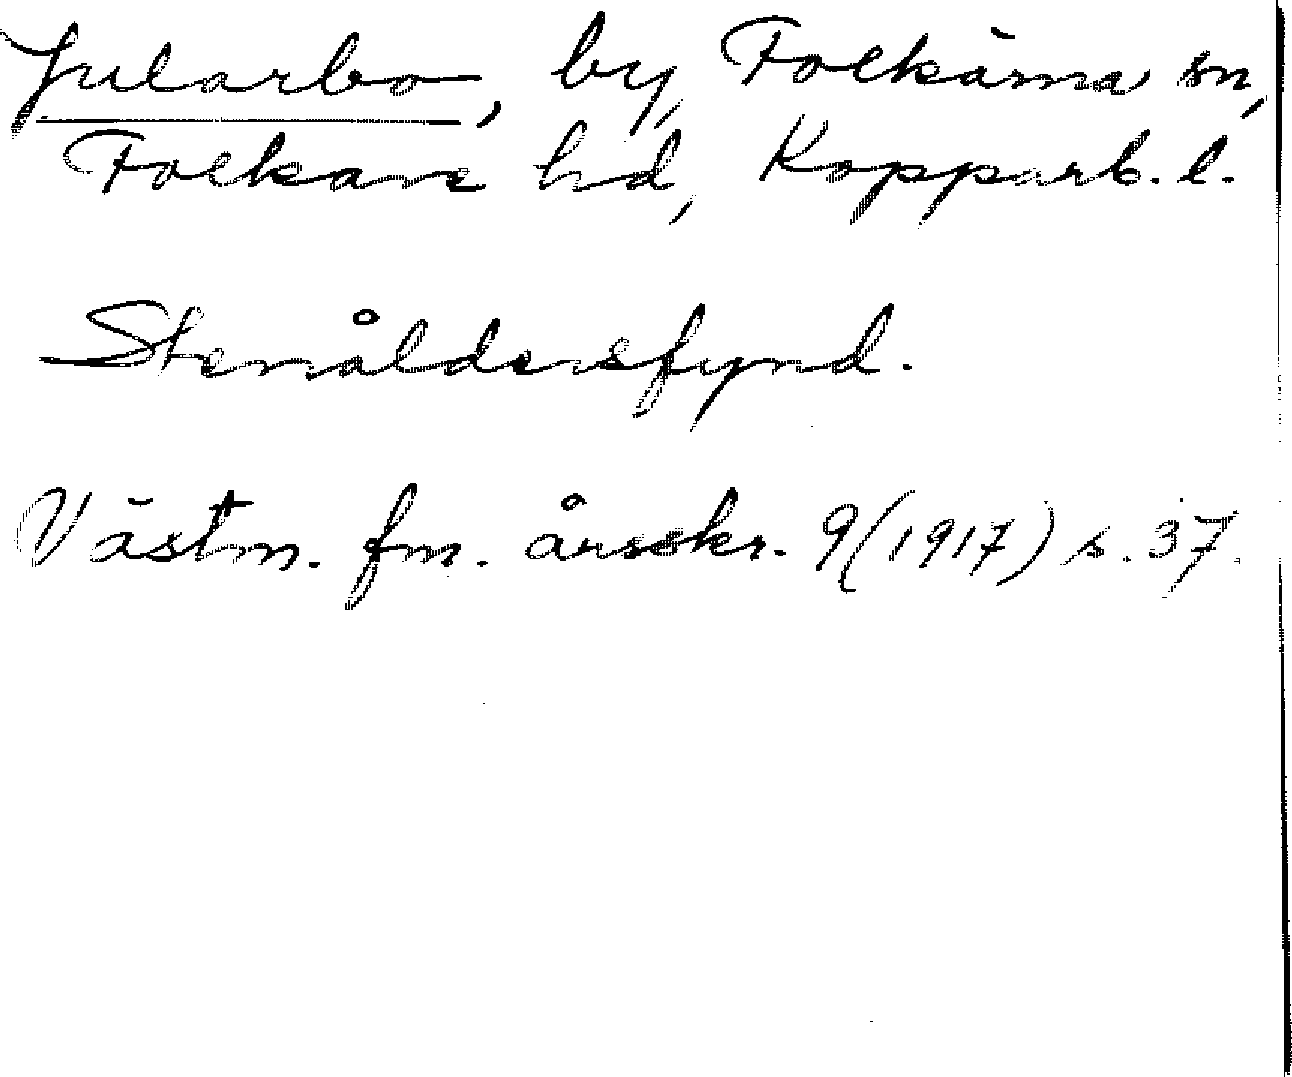 Jularbo, by, Folkärna sn,
Folkare hd, Kopparb. l.
Stenåldersfynd.
Västm. fm. årsskr. 9 (1917) s. 37.